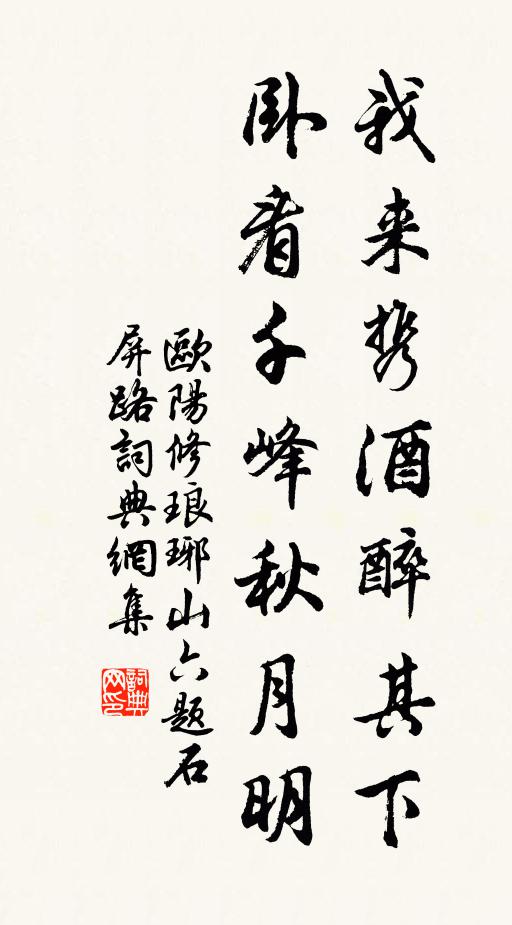 我来携酒醉其下
卧看千峰秋月明
歐陽修琅琊山六題石
屏路詞典網集
詞典网印